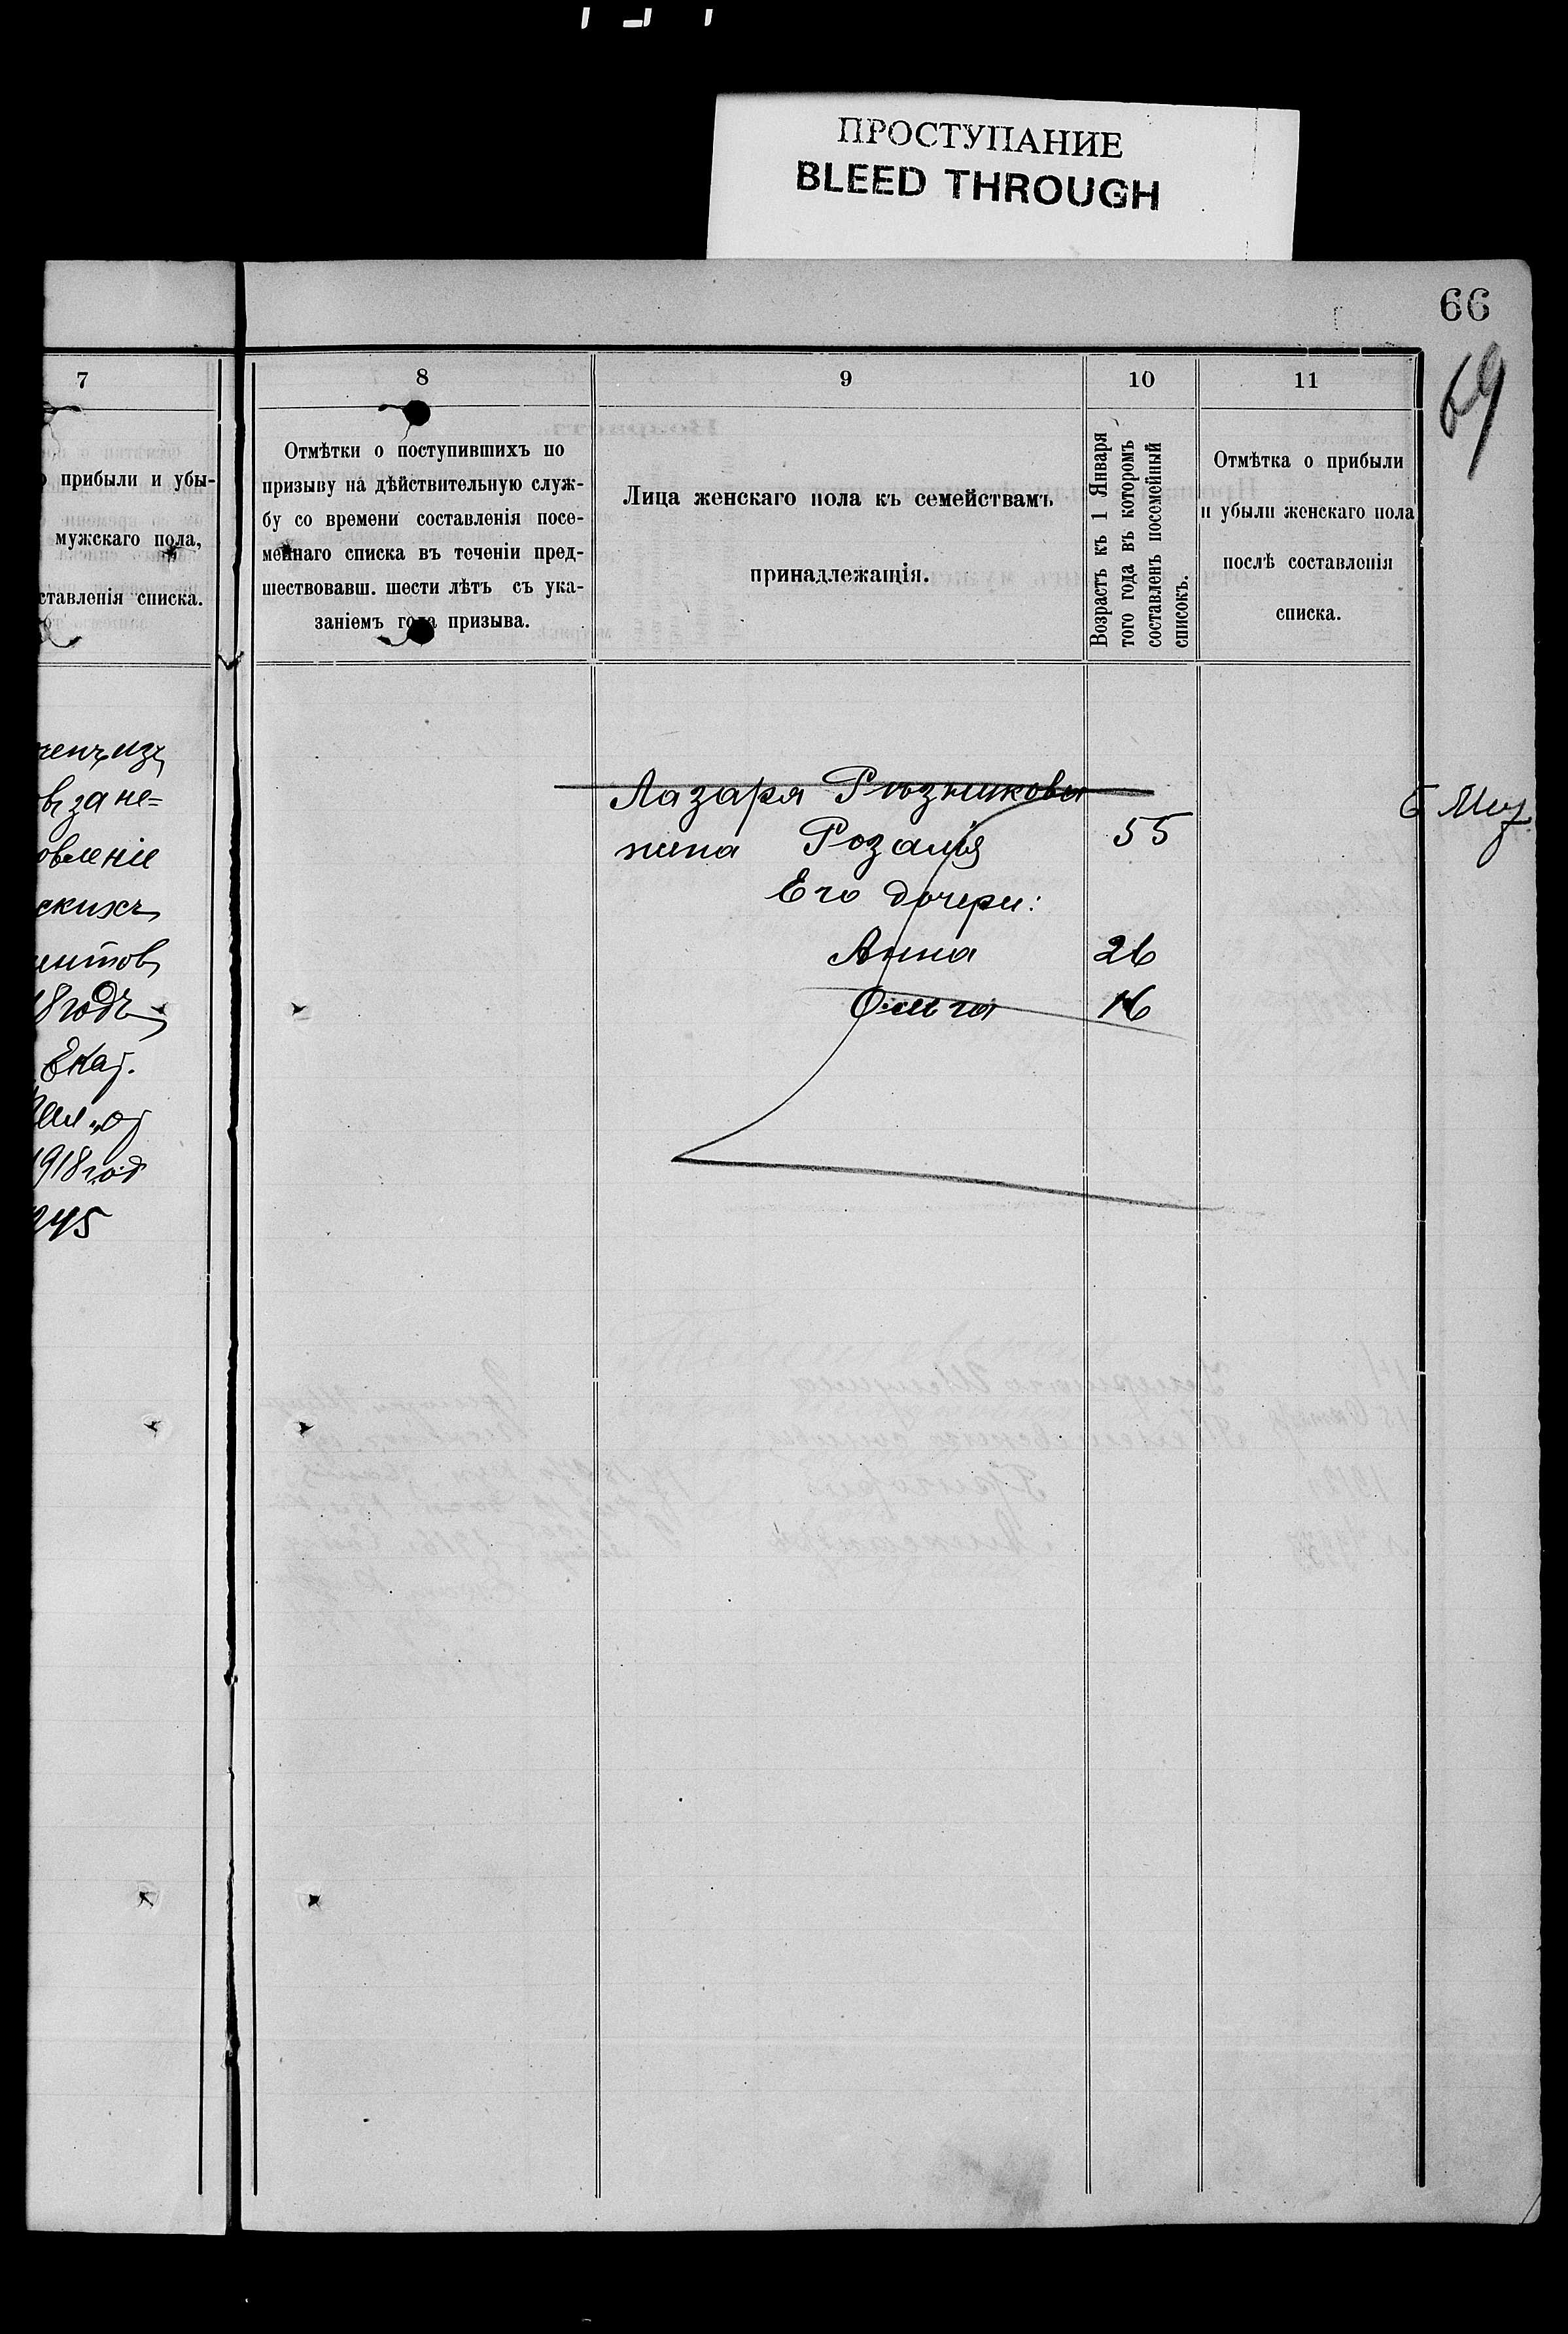 ПРОСТУПАНИЕ
BLEED THROUGH
66
69
7
прибыли и убы-
мужскаго пола,
ставленія списка.
8
Отмѣтки о поступившихъ по
призыву на дѣйствительную служ-
бу со времени составленія посе-
мейнаго списка въ теченіи пред-
шествовавш. шести лѣтъ съ ука-
заніемъ года призыва.
9
Лица женскаго пола къ семействамъ
принадлежащія.
10
Возрастъ къ 1 Января
того года въ которомъ
составленъ посемейный
списокъ.
11
Отмѣтка о прибыли
и убыли женскаго пола
послѣ составленія
списка.
ченъ изъ
въ за не=
овленіе
скихъ
ентов
18 годъ
Екат.
1918 год
245
Лазаря Рѣзникова
жена Розалія 55
Его дочери:
Анна 26
Ольга 16